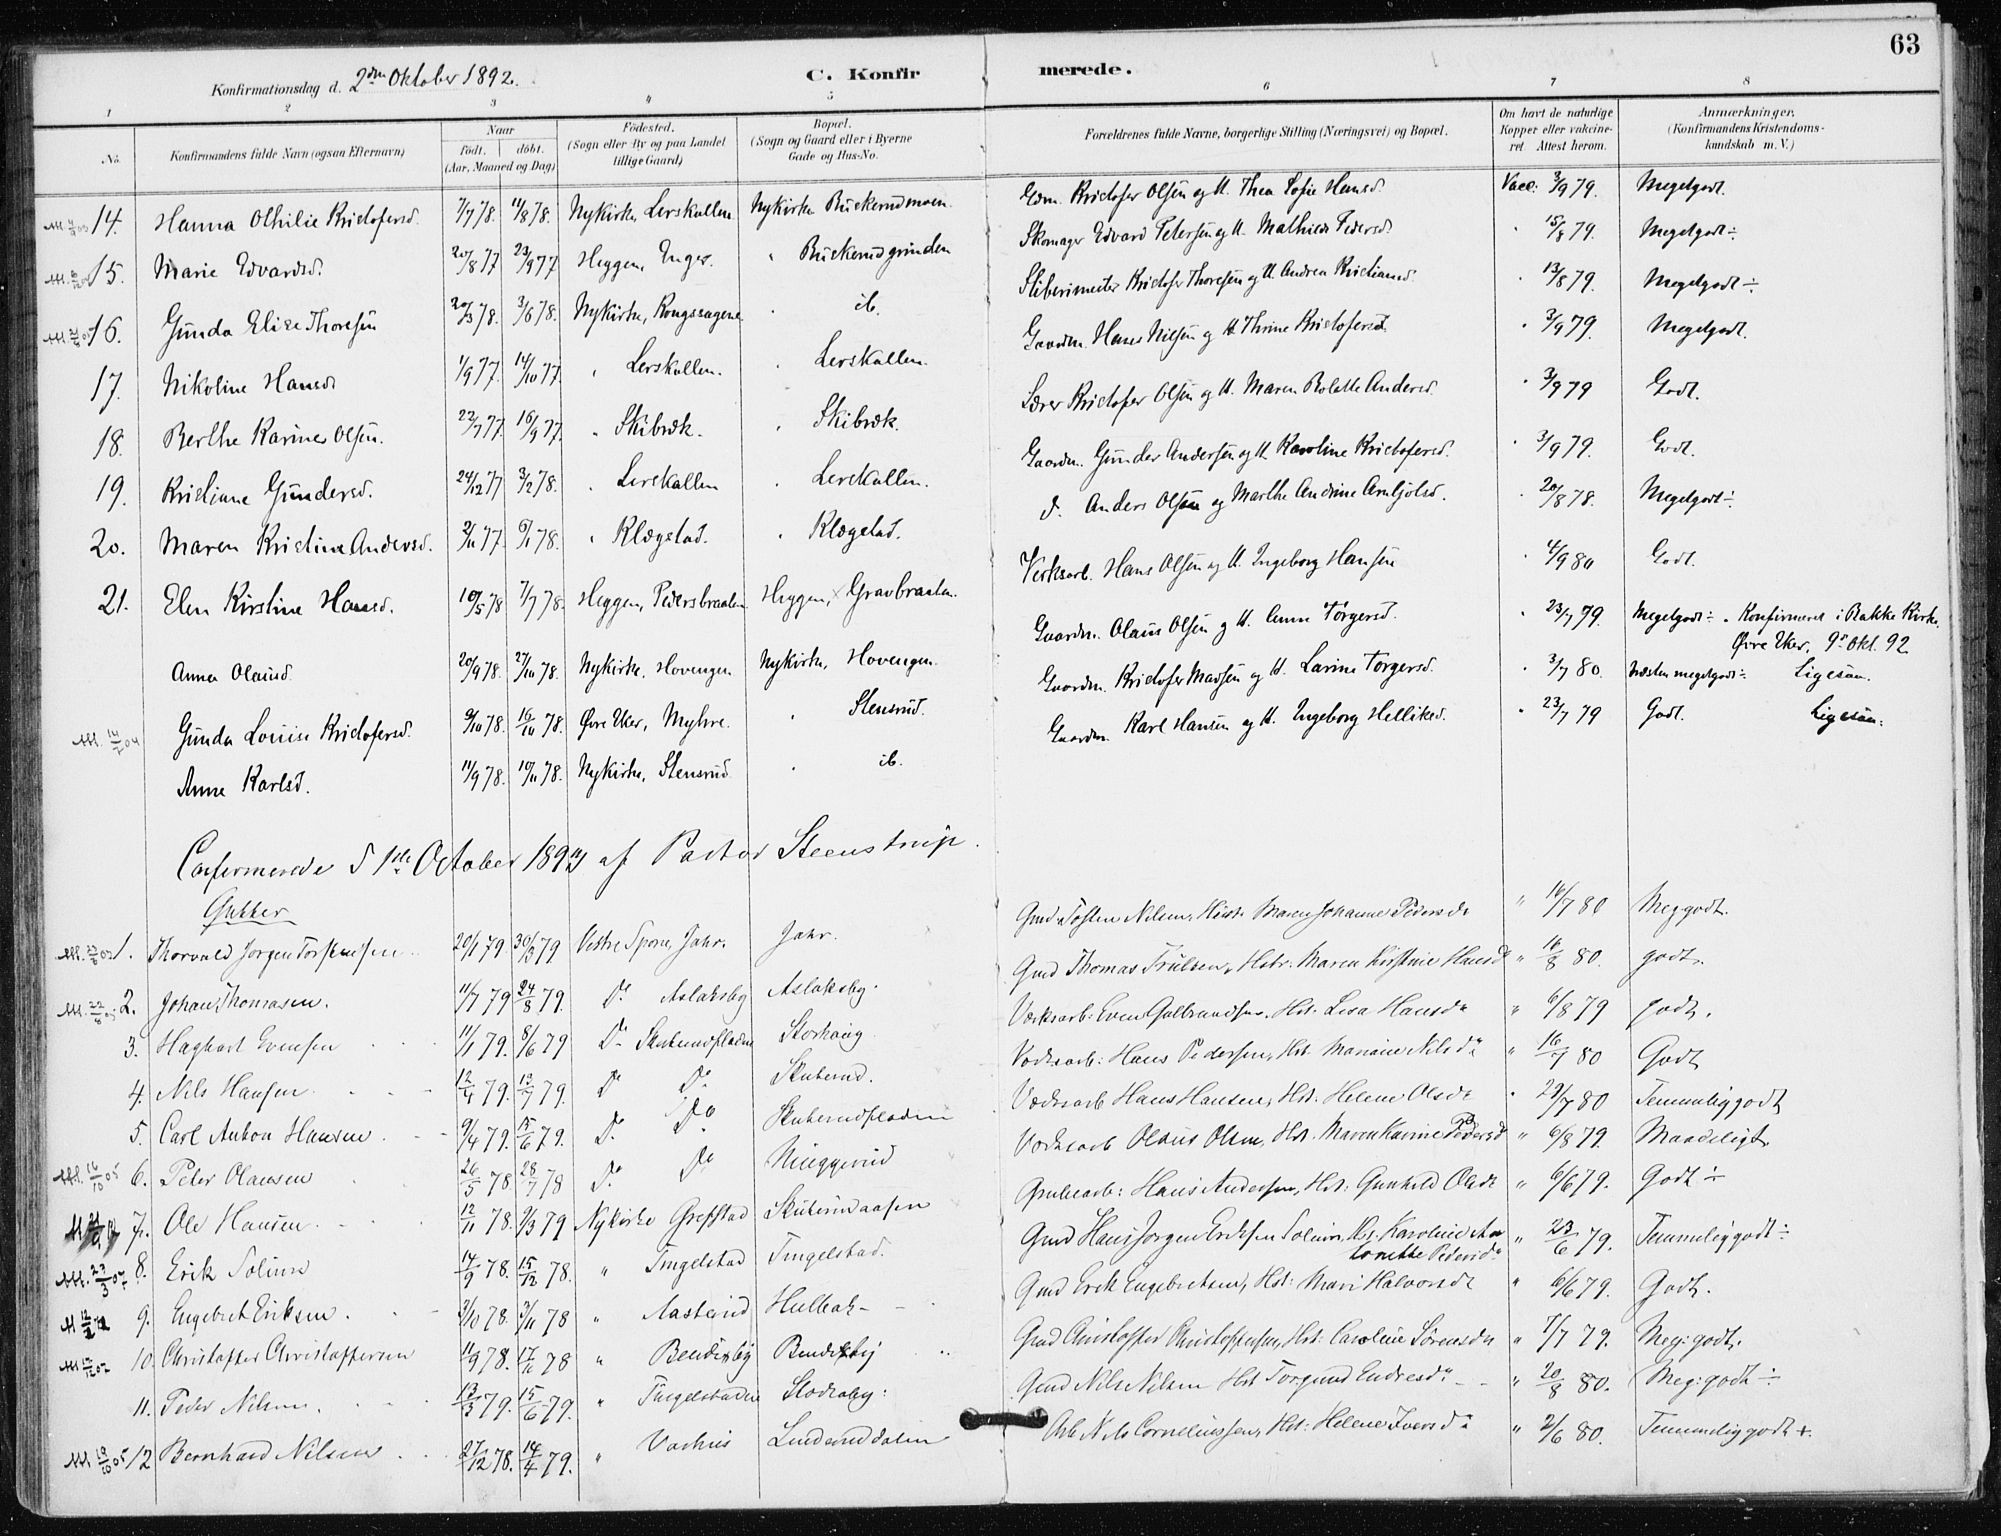 63
Konfirmationsdag d. 2den Oktober 1892. C. Konfirmerede.
1 2 3 4 5 6 7 8
No. Konfirmandens fulde Navn (ogsaa Efternavn) Naar födt. döbt. (Aar, Maaned og Dag) Födested. (Sogn eller By og paa Landet tillige Gaard) Bopæl. (Sogn og Gaard eller i Byerne Gade og Hus-No. Forældrenes fulde Navne, borgerlige Stilling (Næringsvei) og Bopæl. Om havt de naturlige Kopper eller vakcineret. Attest herom. Anmærkninger. (Konfirmandens Kristendomskundskab m. V.)
14. Hanna Othilie Kristofersd. 7/7 78. 11/8 78. Nykirke Lerskallen Nykirke Buskerudmoen Gdm. Kristofer Olsen og H. Thea Sofie Hansd. Vacc: 3/9 79. Megetgodt.
15. Marie Edvardsd. 20/8 77 23/9 77 Heggen, Enger. " Buskerudgrinden Skomager Edvard Petersen og H. Mathilde Pedersd. " 15/8 79. Megetgodt÷
16. Gunda Elise Thoresen 20/3 78. 3/6 78. Nykirke, Kongssagene " ib. Sliberimester Kristofer Thoresen og H. Andrea Kristiansd. " 13/8 79. Megetgodt÷
17. Nikoline Hansd. 1/9 77. 14/10 77. " Lerskallen. " Lerskallen. Gaardm. Hans Nilsen og H. Thrine Kristofersd. " 3/9 79. Megetgodt.
18. Berthe Karine Olsen. 22/7 77. 16/9 77. " Skibræk. " Skibræk. Lærer Kristofer Olsen og H. Maren Bolette Andersd. " 3/9 79 Godt.
19. Kristiane Gundersd. 24/12 77 3/2 78. " Lerskallen " Lerskallen. Gaardm. Gunder Andersen og H. Karoline Kristofersd. " 3/9 79. Godt.
20. Maren Kristine Andersd. 2/11 77. 6/1 78. " Klægstad. " Klægstad. d. Anders Olsen og Marthe Andrine Arnljotsd. " 20/8 78. Megetgodt÷
21. Elen Kirstine Hansd. 10/5 78 7/7 78. Heggen, Pedersbraaten Heggen, Gravbraaten. Verksarb. Hans Olsen og H. Ingeborg Hansen " 4/9 80 Godt.
Anna Olausd. 20/9 78. 27/10 78. Nykirke, Hovengen Nykirke, Hovengen. Gaardm. Olaus Olsen og H. Anne Torgersd. " 23/7 79. Megetgodt÷. Konfirmeret i Bakke Kirke, Øvre Eker, 9de Okt. 92
Gunda Louise Kristofersd. 9/10 78. 16/10 78. Øvre Eker, Myhre. " Stensrud. Gaardm. Kristofer Madsen og H. Larine Torgersd. " 3/7 80. Næsten megetgodt÷ Ligesaa.
Anne Karlsd. 11/9 78. 10/11 78. Nykirke, Stensrud " ib. Gaardm. Karl Hansen og H. Ingeborg Helliksd. " 23/7 79 Godt. Ligesaa.
Confirmerede d 1ste October 1893 af Pastor Steenstrup.
Gutter
1. Thorvald Jørgen Torstensen 20/1 79. 30/3 79 Vestre Spone, Jahr. Jahr. Gmd Tosten Nilsen, Hustr. Maren Johanne Pedersdr " 16/7 80 Meggodt.
2. Johan Thomasen. 11/7 79 24/8 79. Do Aslaksby Aslaksby. Gmd Thomas Trulsen, Hstr: Maren Kirstine Hansd " 16/8 80. godt.
3. Hagbart Evensen 11/1 79. 8/6 79 Do Skuterudfladen Storhaug Værksarb: Even Gulbrandsen, Hst: Lisa Hansdr " 6/8 79 godt.
4. Nils Hansen 12/4 79. 13/7 79. Do Do Skuterud. Værksarb: Hans Pedersen, Hst. Mariane Nilsdr " 16/7 80 Godt
5. Carl Anton Hansen 9/4 79. 15/6 79. Do Do Skuterudfladen Værksarb Hans Hansen, Hst. Helene Olsdr " 29/7 80 Temmeliggodt
6. Peter Olausen 26/5 78 28/7 78 Do Do Værksarb Olaus Olsen, Hst. Maren Karine Pedersd " 6/8 79. Maadeligt.
7. Ole Hansen 12/11 78. 9/3 79 Nykirke Grefstad Skuterudaasen Grubearb: Hans Andersen, Hst: Gunhild Olsdr " 6/6 79. Godt ÷
8. Erik Solum 14/9 78. 15/12 78. " Tingelstad Tingelstad. Gmd Hans Jørgen Eriksen Solum, Hs. Karoline Lorentze Pedersdr " 23/6 79. Temmeliggodt÷
9. Engebret Eriksen. 3/10 78. 3/11 78 " Aasterud Hulbak Gmd Erik Engebretsen, Hst: Mari Halvorsdr " 6/6 79. Godt.
10. Christoffer Christoffersen 11/9 78. 17/11 78 " Bendiksby Bendiksby Gmd Christoffer Christoffersen, Hst: Caroline Sørensdr " 7/7 79. Meg: godt.
11. Peder Nilsen. 13/3 79. 15/6 79. " Tingelstadeie Stodraby: Gmd Nils Nilsen Hst Torgund Endresdr " 20/8 80. Meg: godt ÷
12 Bernhard Nilsen 27/12 78. 14/4 79. " Varhus Linderuddalen Arb. Nils Corneliussen, Hst: Helene Iversdr " 2/6 80. Temmeliggodt +.